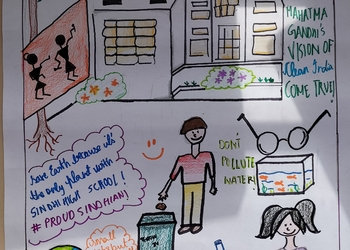 MAHATMA
GANDHI'S
VISION OF
Clean India
COME TRUE!
Save Earth because it's
the only planet with
SINDHI HIGH SCHOOL!
# PROUD SINDHIAN!
DON'T
POLLUTE
WATER!
Small